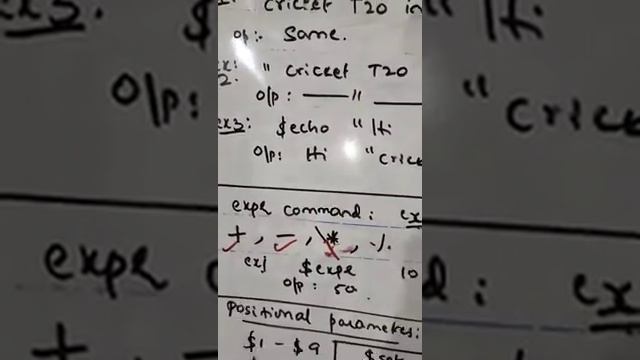 cricket T20 in
o/p:- Same.
ex: 2. " cricket T20
o/p : —— " ——
ex3: $echo "Hi
o/p: Hi "crick
expr command: ex
+, -, \*, %.
ex) $expr 10
o/p : 50.
Positional parameter:
$1 - $9 $set